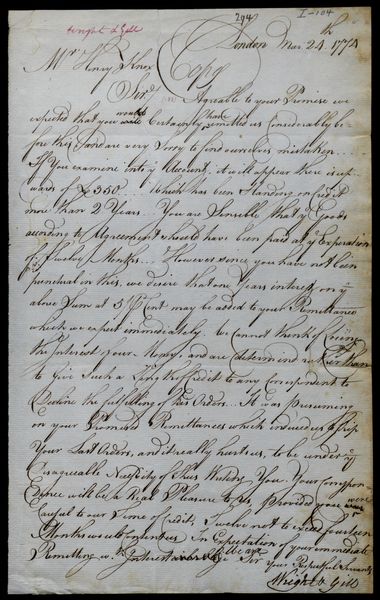 Wright & Gill
294
I-104
London Mar. 24th 1774
Mr Henry Knox
Copy
Sir, Agreable to your Promise we
expected that you would Certainly have remitted us Considerably be-
fore this and are very Sorry to find ourselves mistaken
If You examine into ye Account, it will appear there is up
wards of £350 Which has been Standing on Credit
more than 2 Years You are Sensible that ye Goods
according to Agreement should have been paid at ye Experation
of Twelve Months However since you have not been
punctual in this, we desire that one Years interest on ye
above Sum at 5 P Cent may be added to your Remittance
which we expect immediately. We Cannot think of
the Interest of our Money, and are determined rather than
to Give Such a length of Credit to any Correspondent to
Decline the fulfilling of his Orders It was presuming
on your Promised Remittances which induced us to Ship
Your Last Orders, and it really hurts us, to be under ye
disagreeable Necessity of thus Writing You. Your Correspon-
dence will be a Real Pleasure to us provided you were
Careful to our Time of Credit, Twelve not to exceed fourteen
Months In Expectation of your immediate
Remitting wth Interest We are Sir Your Respectful Servants
Wright & Gill